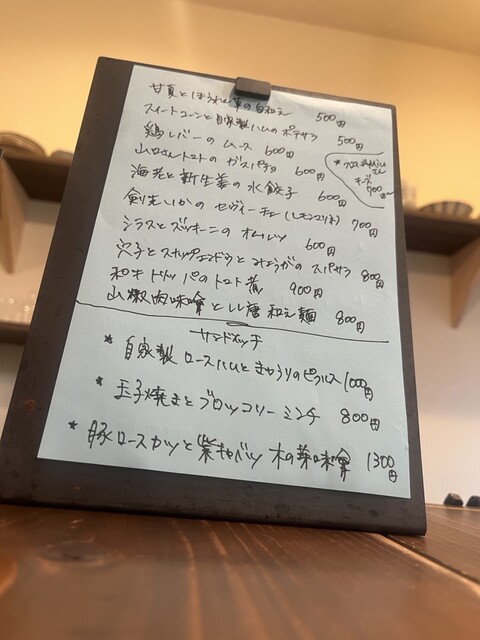 甘夏とほうれん草の白和え 500円
スイートコーンと自家製ハムのポテサラ 500円
鶏レバーのムース 600円
山口さんトマトのガスパチョ 600円
海老と新生姜の水餃子 600円
剣先いかのセヴィーチェ(レモンマリネ) 700円
シラスとズッキーニのオムレツ 600円
穴子とスナップエンドウとみょうがのスパサラ 800円
和牛トリッパのトマト煮 900円
山椒肉味噌としし唐和え麺 800円
チーズ
700円
サンドイッチ
* 自家製ロースハムときゅうりのピクルス 1000円
* 玉子焼きとブロッコリーミンチ 800円
* 豚ロースカツと紫キャベツ 木の芽味噌 1300円